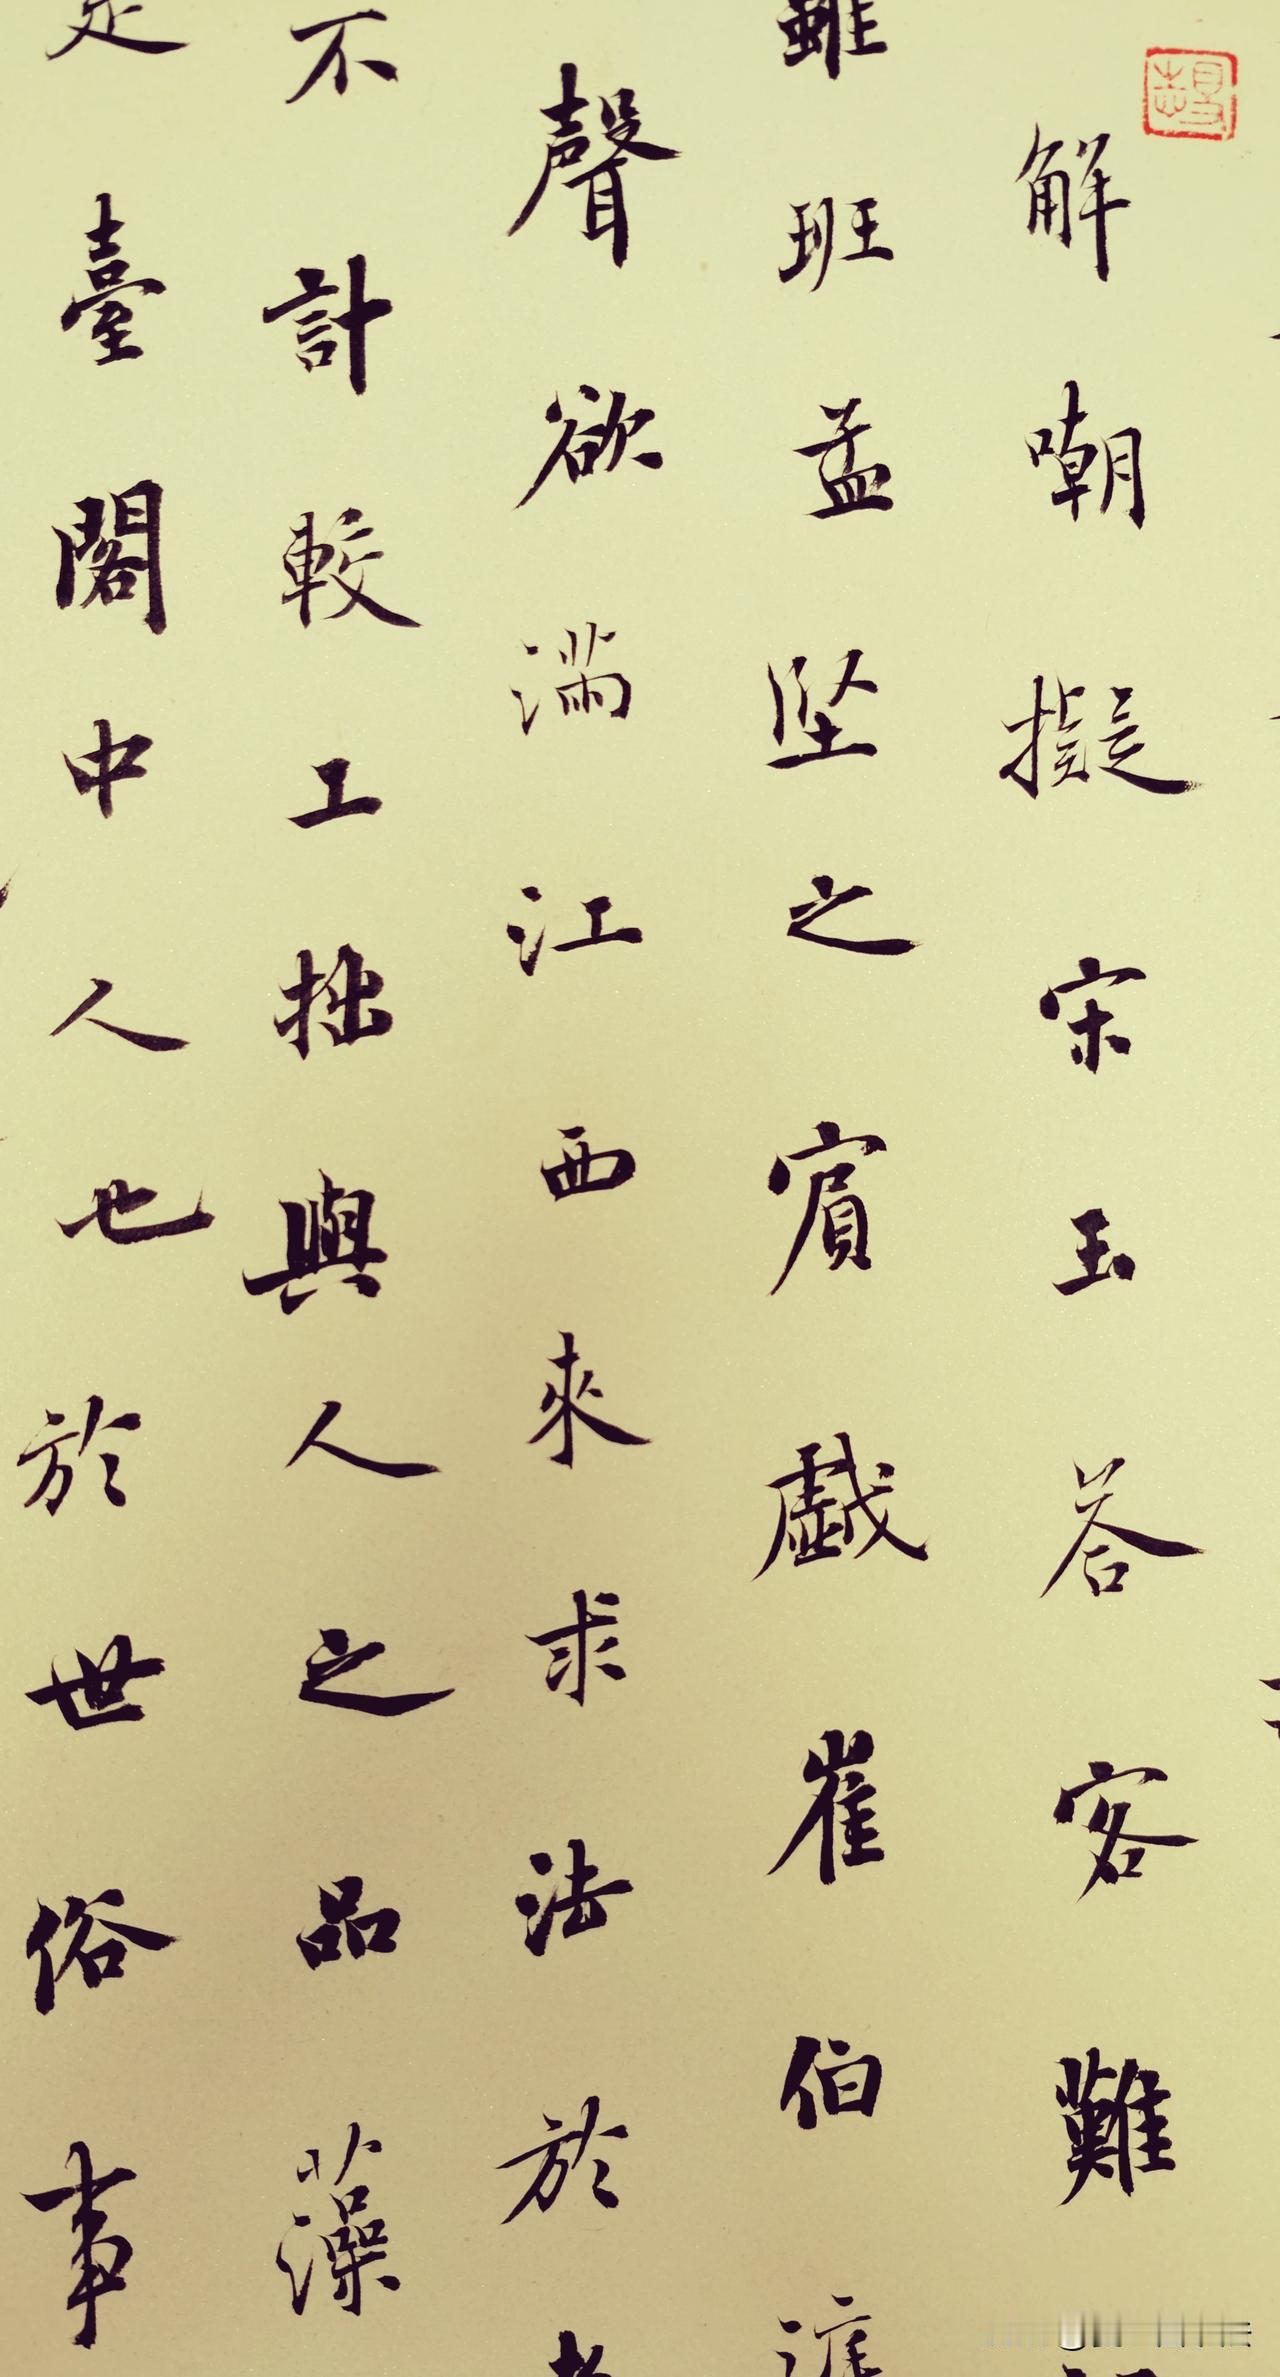 解嘲擬宋玉荅客難
雖班孟堅之賓戯崔伯
聲欲滿江西來求法於
不計較工拙與人之品藻
臺閣中人也於世俗事